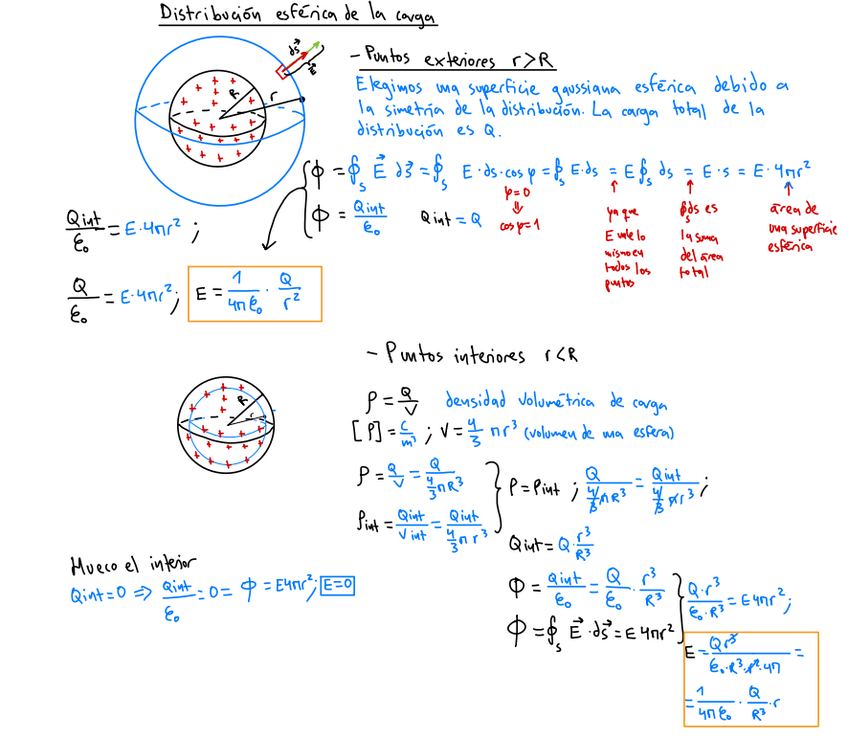 Distribución esférica de la carga
- Puntos exteriores r>R
Elegimos una superficie gaussiana esférica debido a
la simetría de la distribución. La carga total de la
distribución es Q.
ds⃗
E⃗
R
r
ϕ = ∮ₛ E⃗ ds⃗ = ∮ₛ E·ds·cos φ = ∮ₛ E·ds = E ∮ₛ ds = E·s = E·4πr²
φ=0
⇓
cos φ=1
ya que
E vale lo
mismo en
todos los
puntos
∮ₛ ds es
la suma
del área
total
área de
una superficie
esférica
ϕ = Qint/ε₀ Qint = Q
Qint/ε₀ = E·4πr² ;
Q/ε₀ = E·4πr² ; E = 1/(4πε₀) · Q/r²
- Puntos interiores r<R
R
r
ρ = Q/V densidad volumétrica de carga
[ρ] = C/m³ ; V = 4/3 πr³ (volumen de una esfera)
ρ = Q/V = Q/(4/3 πR³)
ρint = Qint/Vint = Qint/(4/3 πr³)
ρ = ρint ; Q/(4/3 πR³) = Qint/(4/3 πr³) ;
Qint = Q·r³/R³
ϕ = Qint/ε₀ = Q/ε₀ · r³/R³
ϕ = ∮ₛ E⃗·ds⃗ = E4πr²
Q·r³/(ε₀·R³) = E4πr² ;
E = Qr³/(ε₀·R³·r²·4π) =
= 1/(4πε₀) · Q/R³ · r
Hueco el interior
Qint=0 ⇒ Qint/ε₀ = 0 = ϕ = E4πr² ; E=0